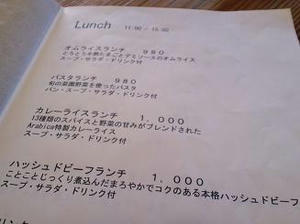 Lunch 11:00 - 15:00
オムライスランチ 980
とろとろ半熟たまごとデミソースのオムライス
スープ・サラダ・ドリンク付
パスタランチ 980
旬の菜園野菜を使ったパスタ
パン・スープ・サラダ・ドリンク付
カレーライスランチ 1,000
13種類のスパイスと野菜の甘みがブレンドされた
Arabica特製カレーライス
スープ・サラダ・ドリンク付
ハッシュドビーフランチ 1,000
ことことじっくり煮込んだまろやかでコクのある本格ハッシュドビーフ
スープ・サラダ・ドリンク付